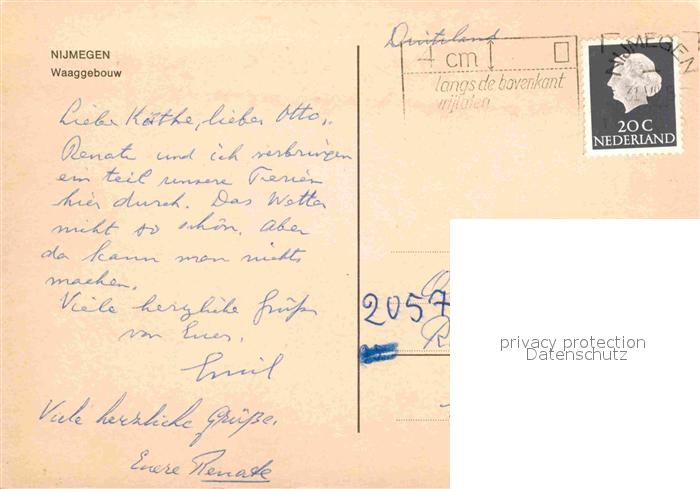 NIJMEGEN
Waaggebouw
Duitsland
4 cm
langs de bovenkant
vrijlaten
NIJMEGEN
20 C
NEDERLAND
Liebe Käthe, lieber Otto,
Renate und ich verbringen
ein teil unsere Ferien
hier durch. Das Wetter
nicht so schön. Aber
da kann man nichts
machen.
Viele herzliche Grüße
von Euer,
Emil
Viele herzliche Grüße.
Euere Renate
2057
privacy protection
Datenschutz